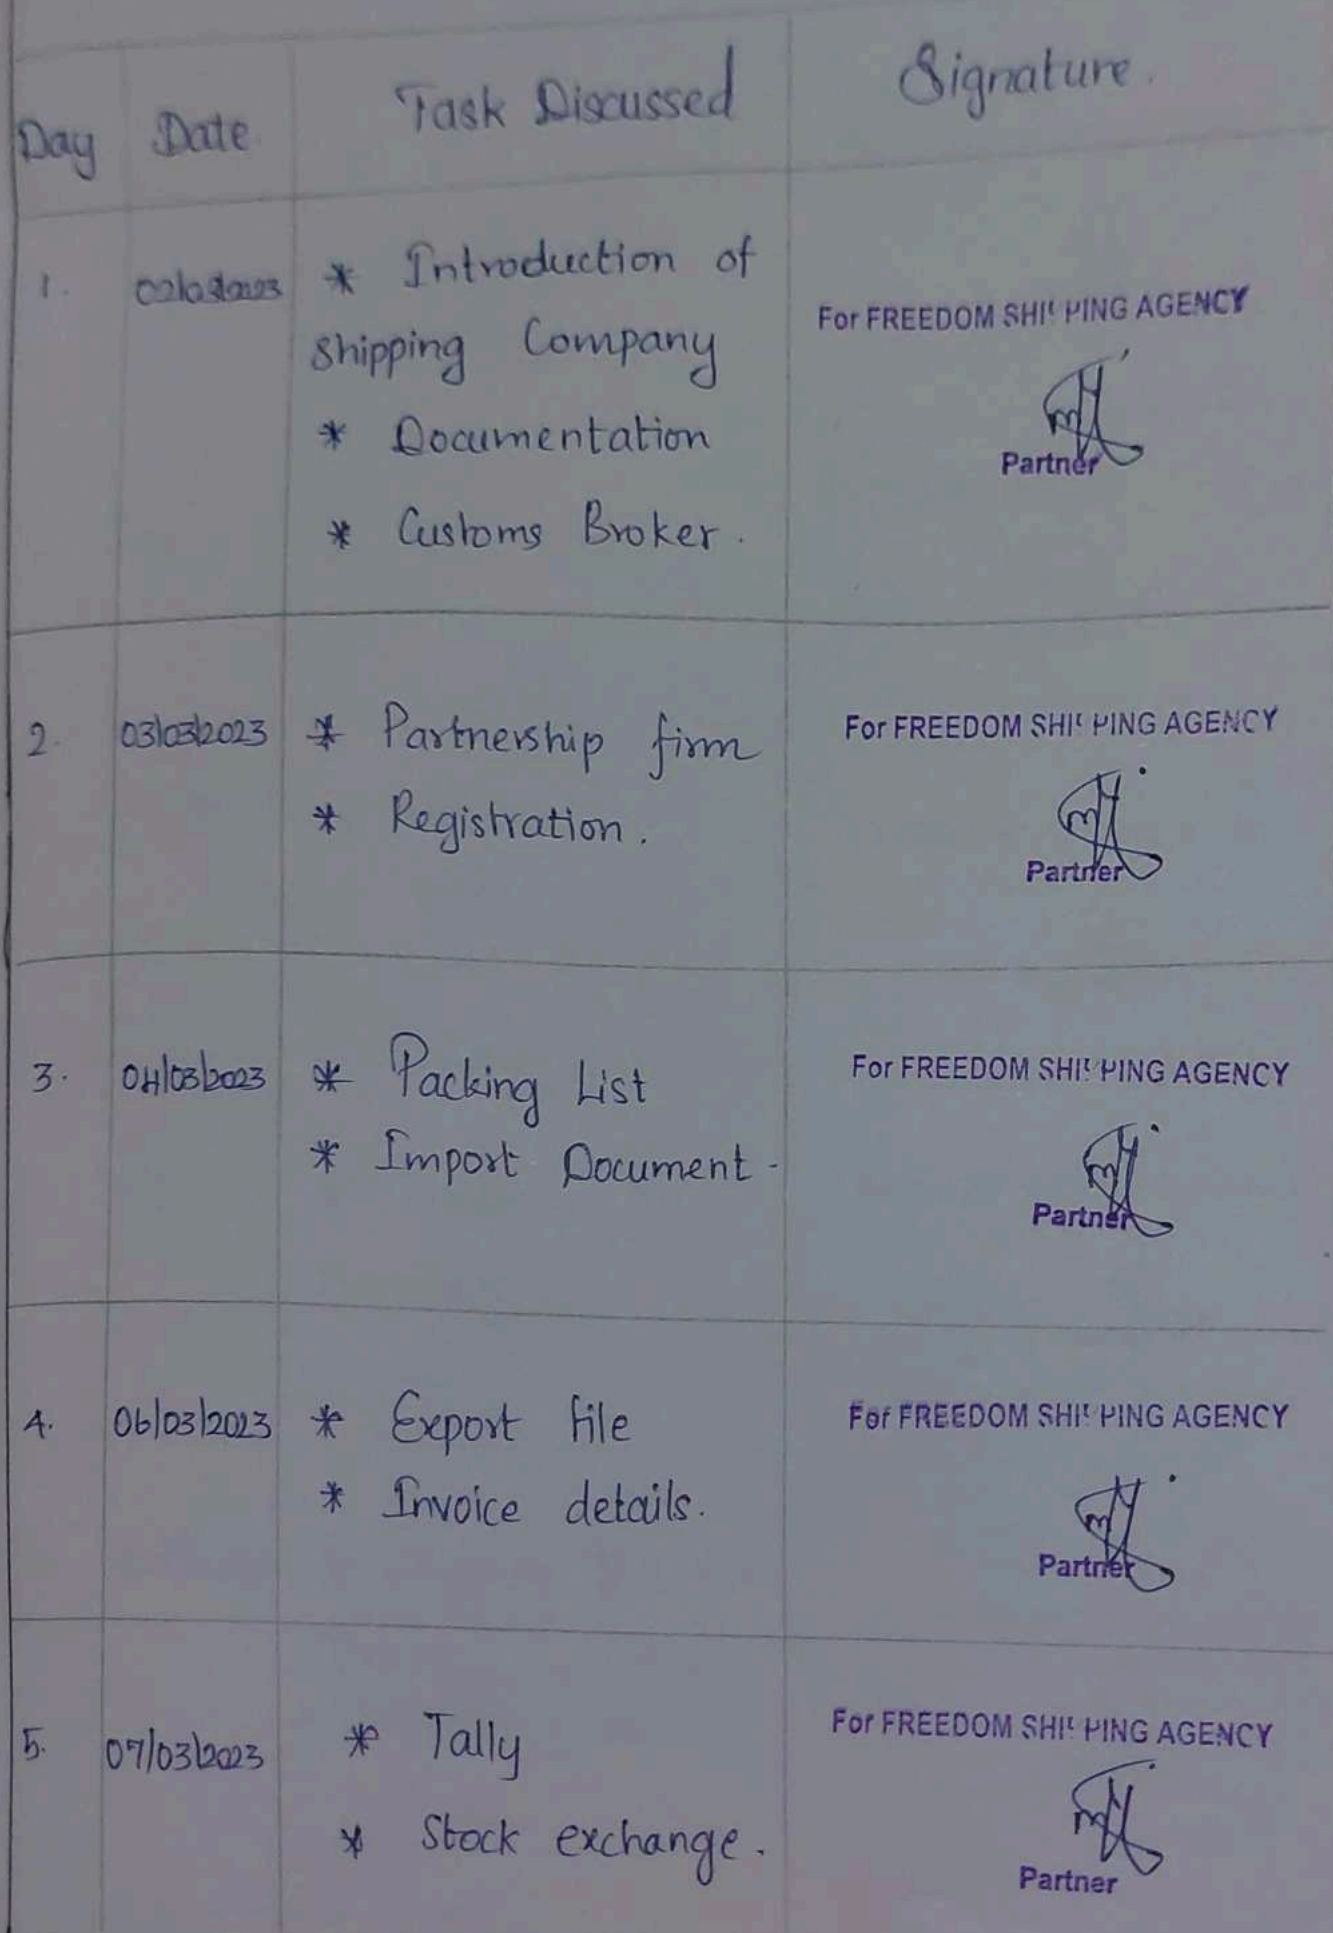 Day Date Task Discussed Signature.
1. 02/03/2023 * Introduction of
shipping Company
* Documentation
* Customs Broker.
For FREEDOM SHIPPING AGENCY
Partner
2. 03/03/2023 * Partnership firm
* Registration.
For FREEDOM SHIPPING AGENCY
Partner
3. 04/03/2023 * Packing List
* Import Document.
For FREEDOM SHIPPING AGENCY
Partner
4. 06/03/2023 * Export file
* Invoice details.
For FREEDOM SHIPPING AGENCY
Partner
5. 07/03/2023 * Tally
* Stock exchange.
For FREEDOM SHIPPING AGENCY
Partner